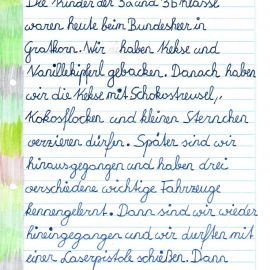 Die Kinder der 3a und 3b Klasse
waren heute beim Bundesheer in
Gratkorn. Wir haben Kekse und
Vanillekipferl gebacken. Danach haben
wir die Kekse mit Schokostreusel,
Kokosflocken und kleinen Sternchen
verzieren dürfen. Später sind wir
hinausgegangen und haben drei
verschiedene wichtige Fahrzeuge
kennengelernt. Dann sind wir wieder
hineingegangen und wir durften mit
einer Laserpistole schießen. Dann